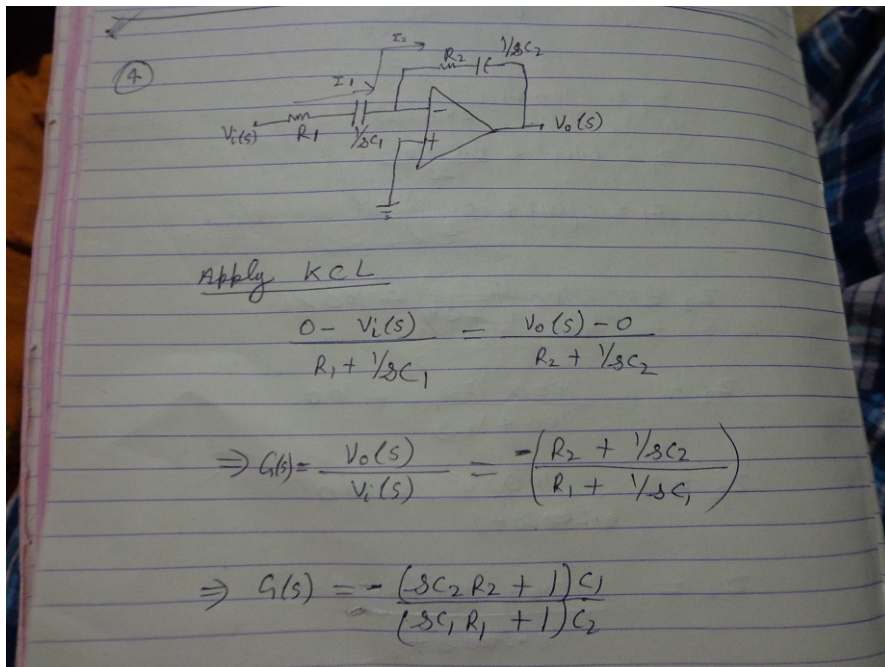 4
I2
R2 1/sC2
I1
Vi(s) R1 1/sC1 - + Vo(s)
Apply KCL
0 - Vi(s) / R1 + 1/sC1 = Vo(s) - 0 / R2 + 1/sC2
⇒ G(s) = Vo(s) / Vi(s) = -(R2 + 1/sC2 / R1 + 1/sC1)
⇒ G(s) = - (sC2R2 + 1)C1 / (sC1R1 + 1)C2